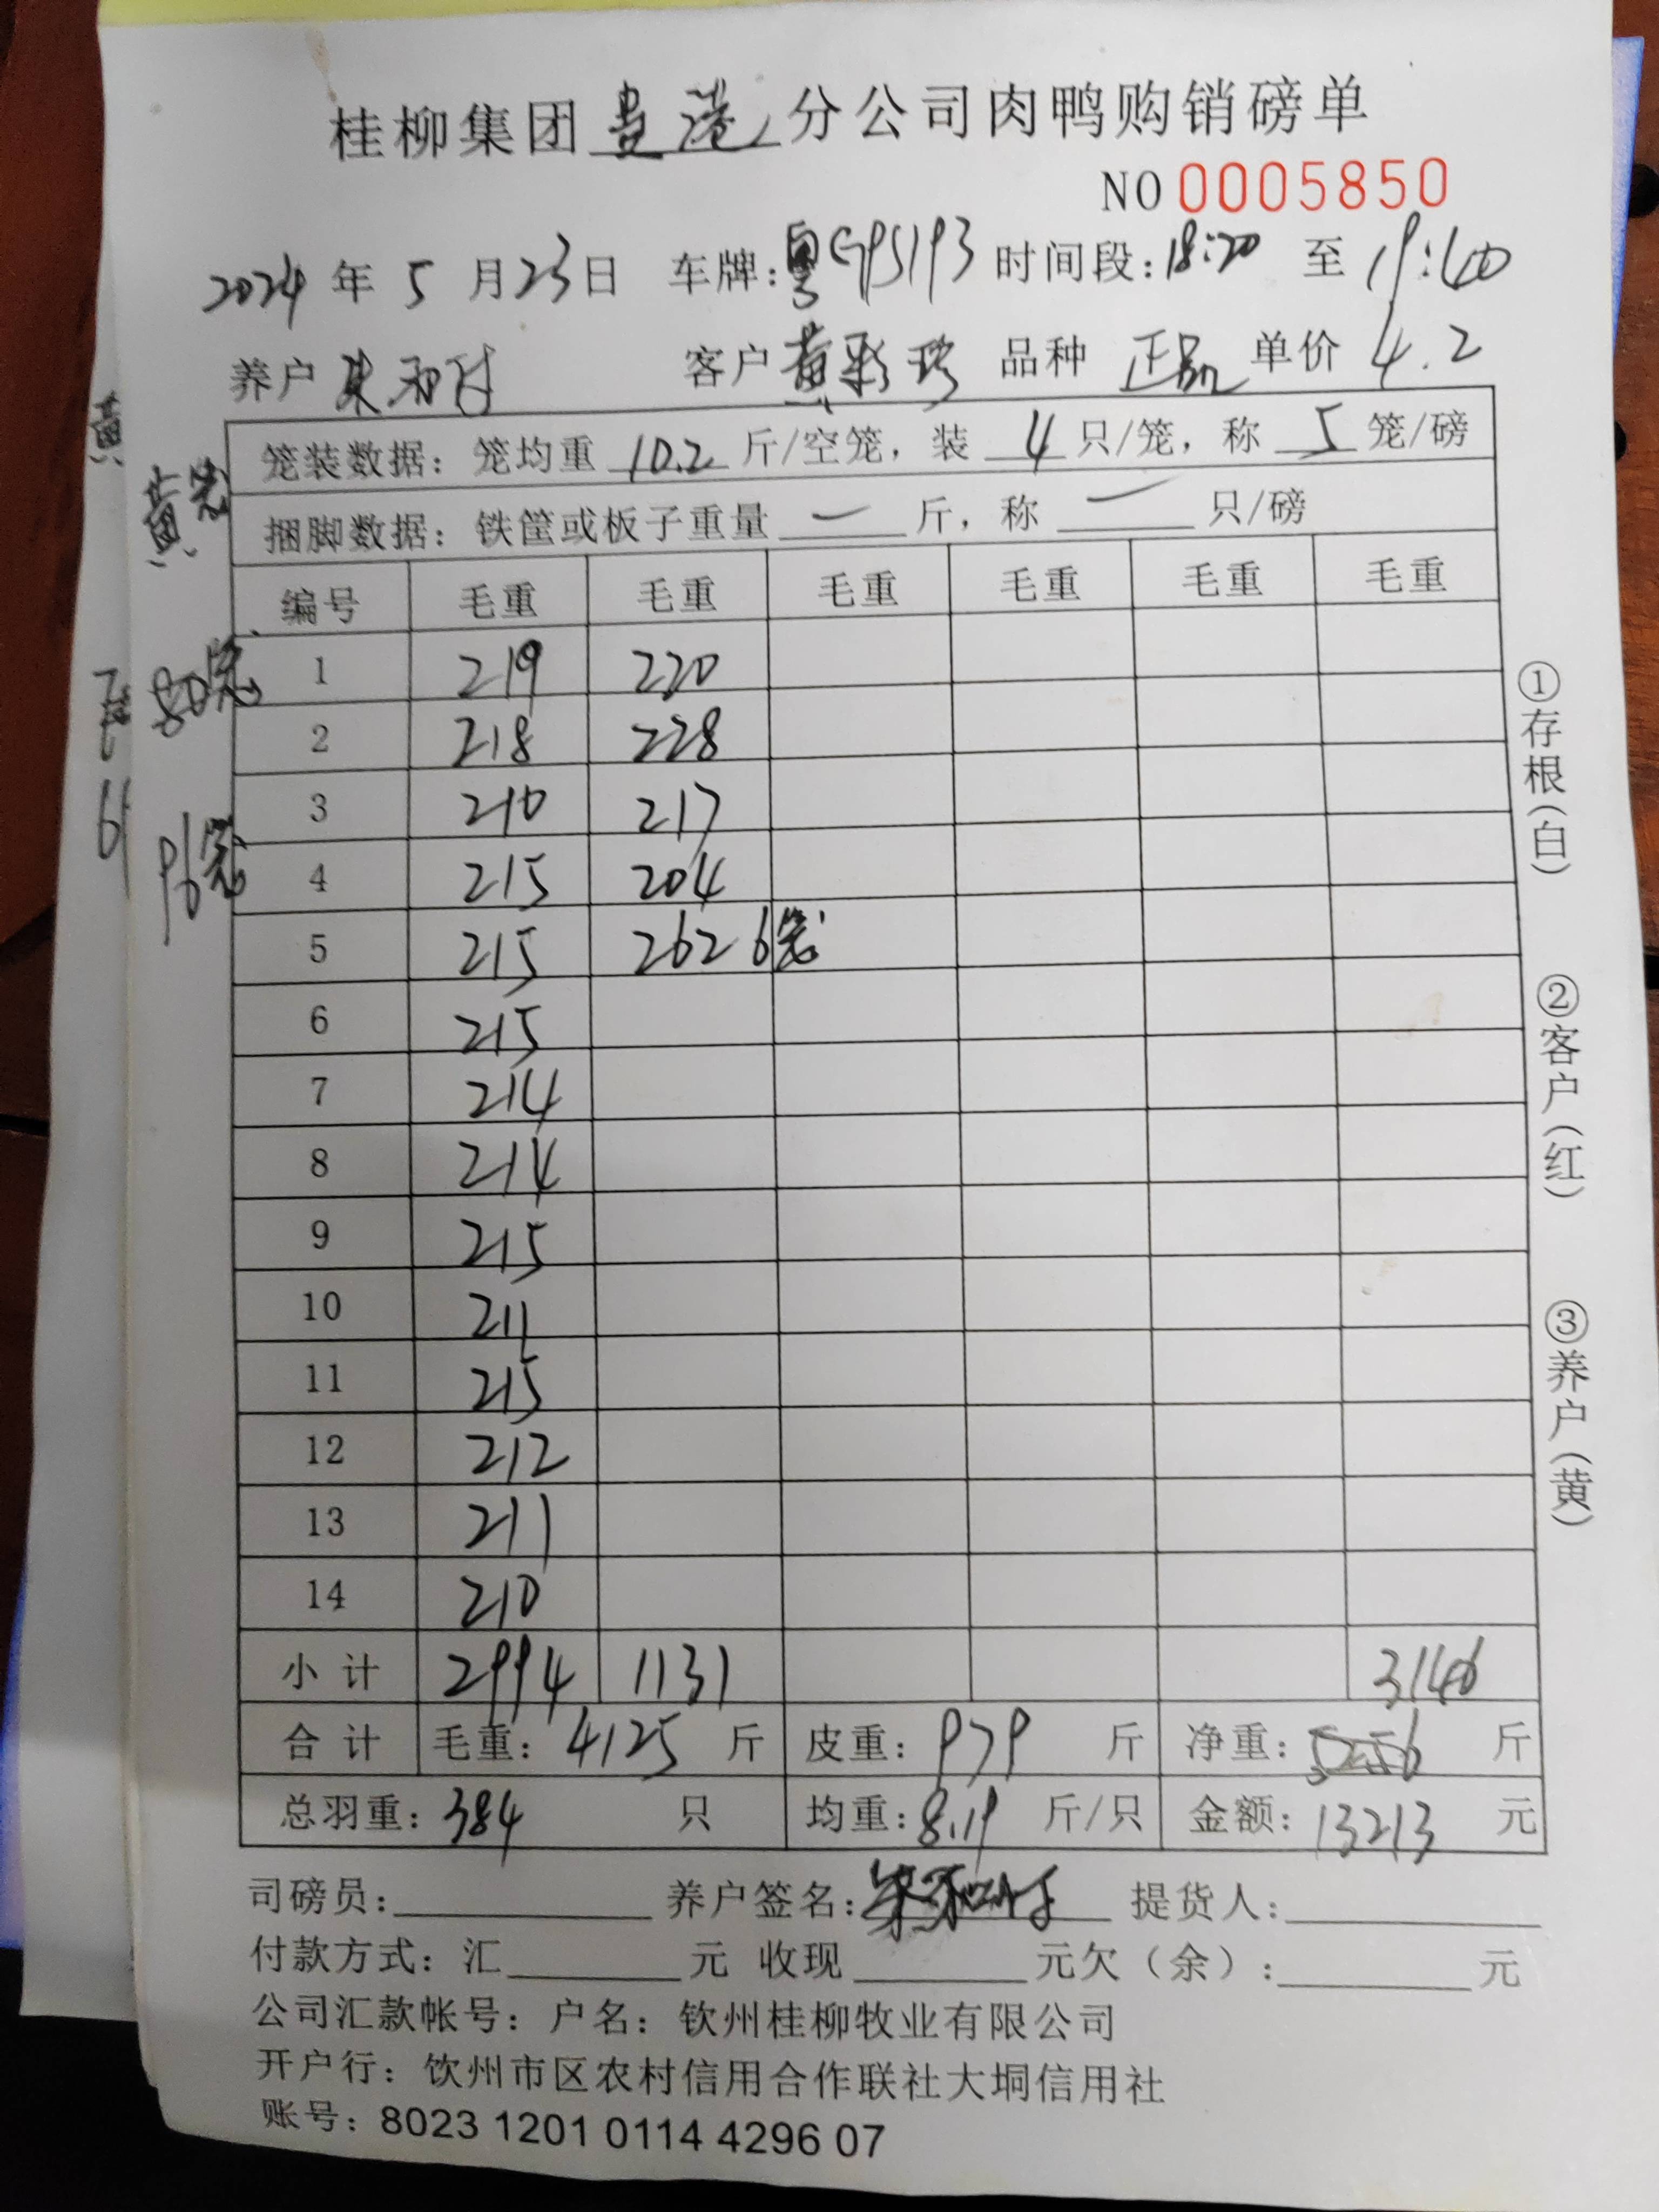 桂柳集团贵港分公司肉鸭购销磅单
NO 0005850
2024年5月23日 车牌:粤GP5193 时间段:18:20 至 19:40
养户 朱和 客户 黄彩珍 品种 正品 单价 4.2
笼装数据: 笼均重 10.2 斤/空笼, 装 4 只/笼, 称 5 笼/磅
捆脚数据: 铁筐或板子重量 — 斤, 称 — 只/磅
编号 毛重 毛重 毛重 毛重 毛重 毛重
1 219 220
2 218 228
3 210 217
4 215 204
5 215 262 6笼
6 215
7 214
8 214
9 215
10 211
11 215
12 212
13 211
14 210
小计 2994 1131 3146
合计 毛重: 4125 斤 皮重: 979 斤 净重: 斤
总羽重: 384 只 均重: 8.19 斤/只 金额: 13213 元
司磅员: 养户签名: 朱和 提货人:
付款方式: 汇 元 收现 元欠(余): 元
公司汇款帐号: 户名: 钦州桂柳牧业有限公司
开户行: 钦州市区农村信用合作联社大垌信用社
账号: 8023 1201 0114 4296 07
①存根(白)
②客户(红)
③养户(黄)
黄
黄笼
80笼
96笼